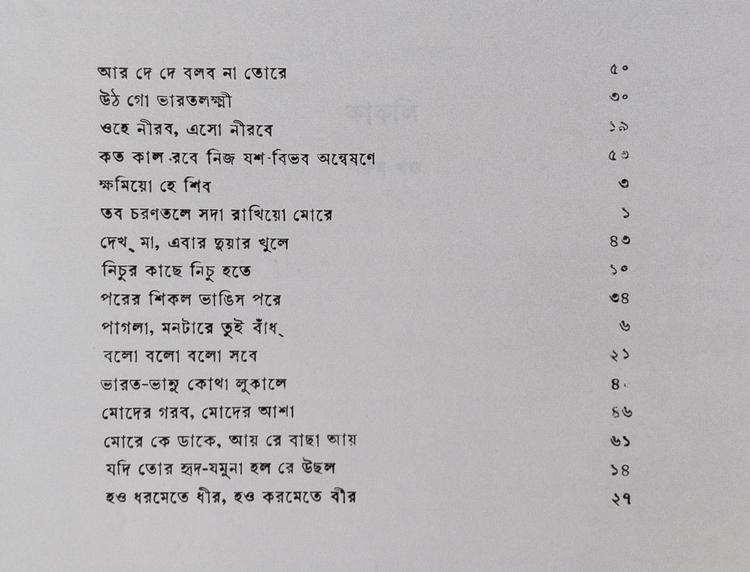 আর দে দে বলব না তোরে ৫০
উঠ গো ভারতলক্ষ্মী ৩০
ওহে নীরব, এসো নীরবে ১৯
কত কাল রবে নিজ যশ-বিভব অন্বেষণে ৫৩
ক্ষমিয়ো হে শিব ৩
তব চরণতলে সদা রাখিয়ো মোরে ১
দেখ্‌ মা, এবার দুয়ার খুলে ৪৩
নিচুর কাছে নিচু হতে ১০
পরের শিকল ভাঙিস পরে ৩৪
পাগলা, মনটারে তুই বাঁধ্‌ ৬
বলো বলো বলো সবে ২১
ভারত-ভানু কোথা লুকালে ৪
মোদের গরব, মোদের আশা ৪৬
মোরে কে ডাকে, আয় রে বাছা আয় ৬১
যদি তোর হৃদ-যমুনা হল রে উছল ১৪
হও ধরমেতে ধীর, হও করমেতে বীর ২৭